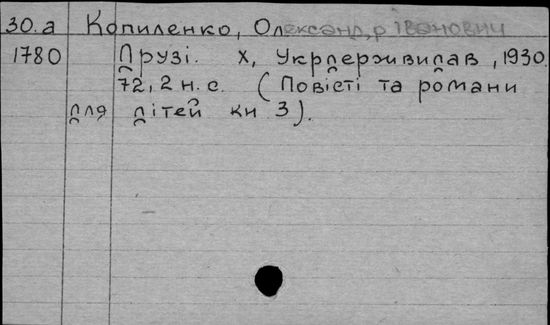 30.а Копиленко, Олександ,р Іванович
1780 Друзі. Х, Укрдерживидав, 1930.
72, 2 н. с. (Повісті та романи
для дітей кн 3).